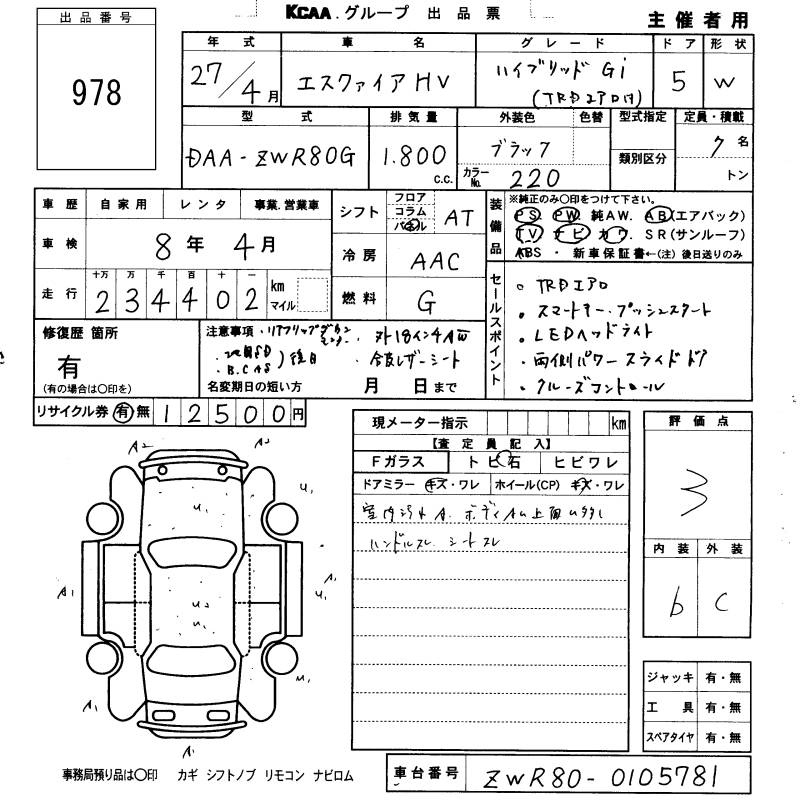 KCAA.グループ 出品票
主催者用
出品番号
978
年式 車名 グレード ドア 形状
27/4月 エスクァイアHV ハイブリッド Gi (TRDエアロ付) 5 W
型式 排気量 外装色 色替 型式指定 定員・積載
DAA-ZWR80G 1.800 c.c. ブラック 7名
カラーNo. 220 類別区分 トン
車歴 自家用 レンタ 事業.営業車
車検 8年 4月
走行 十万 万 千 百 十 一 km マイル
234402
シフト フロア コラム パネル AT
冷房 AAC
燃料 G
装備品 ※純正のみ○印をつけて下さい。
PS PW 純AW. AB(エアバック)
TV ナビ カワ. SR(サンルーフ)
ABS ・ 新車保証書←(注) 後日送りのみ
セールスポイント
。TRDエアロ
。スマートキー・プッシュスタート
。LEDヘッドライト
。両側パワースライドドア
。クルーズコントロール
修復歴 箇所
有
(有の場合は○印を)
注意事項・リアフリップダウンモニター 外18インチAW
・B.CAS)後日 合皮レザーシート
名変期日の短い方 月 日まで
リサイクル券 有 無 12500円
現メーター指示 km
【査定員記入】
Fガラス トビ石 ヒビワレ
ドアミラー キズ・ワレ ホイール(CP) キズ・ワレ
室内汚れA. ボディAU上面U多し
ハンドルスレ シートスレ
評価点
3
内装 外装
b C
ジャッキ 有・無
工具 有・無
スペアタイヤ 有・無
A2 A2
U1 U1
A1 U2 A1 U1
U1 U1
A1 A1
A1
事務局預り品は○印 カギ シフトノブ リモコン ナビロム
車台番号 ZWR80-0105781